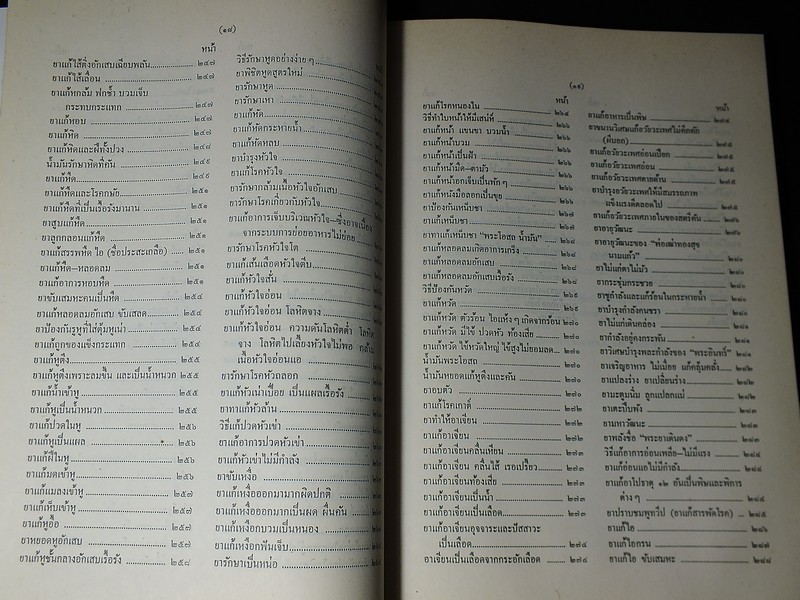 (๑๘)
หน้า
ยาแก้ไส้ติ่งอักเสบเฉียบพลัน ๒๔๗
ยาแก้ไส้เลื่อน ๒๔๗
ยาแก้หกล้ม ฟกช้ำ บวมเจ็บ
กระทบกระแทก ๒๔๗
ยาแก้หอบ ๒๔๗
ยาแก้หิด ๒๔๗
ยาแก้หิดและฝีทั้งปวง ๒๔๘
น้ำมันรักษาหิดที่คัน ๒๔๙
ยาแก้หืด ๒๔๙
ยาแก้หืดและโรคกษัย ๒๕๑
ยาแก้หืดที่เป็นเรื้อรังมานาน ๒๕๑
ยาสูบแก้หืด ๒๕๑
ยาลูกกลอนแก้หืด ๒๕๑
ยาแก้สรรพหืด ไอ (ชื่อประสะเกลือ) ๒๕๑
ยาแก้หืด-หลอดลม ๒๕๑
ยาแก้อาการหอบหืด ๒๕๑
ยาขับเสมหะคนเป็นหืด ๒๕๔
ยาแก้หลอดลมอักเสบ ขับเสลด ๒๕๔
ยาป้องกันรูหูที่ใส่ตุ้มหูเน่า ๒๕๔
ยาแก้ถูกของแข็งกระแทก ๒๕๔
ยาแก้หูตึง ๒๕๕
ยาแก้หูตึงเพราะลมขึ้น และเป็นน้ำหนวก ๒๕๕
ยาแก้น้ำเข้าหู ๒๕๕
ยาแก้หูเป็นน้ำหนวก ๒๕๕
ยาแก้ปวดในหู ๒๕๖
ยาแก้หูเป็นแผล ๒๕๖
ยาแก้ฝีในหู ๒๕๖
ยาแก้มดเข้าหู ๒๕๖
ยาแก้แมลงเข้าหู ๒๕๗
ยาแก้เห็บเข้าหู ๒๕๗
ยาแก้หูอื้อ ๒๕๗
ยาหยอดหูอักเสบ ๒๕๗
ยาแก้หูชั้นกลางอักเสบเรื้อรัง ๒๕๘
วิธีรักษาหูดอย่างง่าย ๆ
ยาพิชิตหูดสูตรใหม่
ยารักษาหูด
ยารักษาเหา
ยาแก้หัด
ยาแก้หัดกระหายน้ำ
ยาแก้หัดหลบ
ยาบำรุงหัวใจ
ยาแก้โรคหัวใจ
ยารักษากล้ามเนื้อหัวใจอักเสบ
ยารักษาโรคเกี่ยวกับหัวใจ
ยาแก้อาการเจ็บบริเวณหัวใจ-ซึ่งอาจเนื่อง
จากระบบการย่อยอาหารไม่ย่อย
ยารักษาโรคหัวใจโต
ยาแก้เส้นเลือดหัวใจตีบ
ยาแก้หัวใจสั่น
ยาแก้หัวใจอ่อน
ยาแก้หัวใจอ่อน โลหิตจาง
ยาแก้หัวใจอ่อน ความดันโลหิตต่ำ โลหิต
จาง โลหิตไปเลี้ยงหัวใจไม่พอ กล้าม
เนื้อหัวใจอ่อนแอ
ยารักษาโรคหัวถลอก
ยาแก้หัวเน่าเปื่อย เป็นแผลเรื้อรัง
ยาทาแก้หัวล้าน
วิธีแก้ปวดหัวเข่า
ยาแก้อาการปวดหัวเข่า
ยาแก้หัวเข่าไม่มีกำลัง
ยาขับเหงื่อ
ยาแก้เหงื่อออกมามากผิดปกติ
ยาแก้เหงื่อออกมาเป็นผด ผื่นคัน
ยาแก้เหงือกบวมเป็นหนอง
ยาแก้เหงือกฟันเจ็บ
ยารักษาเป็นหน่อ
(๑๙)
หน้า
ยาแก้โรคหนองใน ๒๖๔
วิธีทำใบหน้าให้มีเสน่ห์ ๒๖๖
ยาแก้หน้า แขนขา บวมน้ำ ๒๖๖
ยาแก้หน้าบวม ๒๖๖
ยาแก้หน้าเป็นฝ้า ๒๖๖
ยาแก้หน้ามืด-ตามัว ๒๖๖
ยาแก้หน้าอกเจ็บเป็นพัก ๆ ๒๖๖
ยาแก้หนังมือลอกเป็นขุย ๒๖๖
ยาป้องกันเหน็บชา ๒๖๗
ยาแก้เหน็บชา ๒๖๗
ยาทาแก้เหน็บชา "พระโอสถ น้ำมัน" ๒๖๘
ยาแก้หลอดลมเกิดอาการเกร็ง ๒๖๘
ยาแก้หลอดลมอักเสบ ๒๖๘
ยาแก้หลอดลมอักเสบเรื้อรัง ๒๖๘
วิธีป้องกันหวัด ๒๖๙
ยาแก้หวัด ๒๖๙
ยาแก้หวัด ตัวร้อน ไอแห้ง ๆ เกิดจากร้อน ๒๗๐
ยาแก้หวัด มีไข้ ปวดหัว ท้องเสีย ๒๗๐
ยาแก้หวัด ไข้หวัดใหญ่ ไข้สูงไม่ยอมลด ๒๗๐
น้ำมันพระโอสถ ๒๗๐
น้ำมันหยอดแก้หูตึงและคัน ๒๗๑
ยาอบตัว ๒๗๑
ยาแก้โรคเกาต์ ๒๗๒
ยาทำให้อาเจียน ๒๗๒
ยาแก้อาเจียน ๒๗๒
ยาแก้อาเจียนคลื่นเหียน ๒๗๓
ยาแก้อาเจียน คลื่นไส้ เรอเปรี้ยว ๒๗๓
ยาแก้อาเจียนท้องเสีย ๒๗๓
ยาแก้อาเจียนเป็นน้ำ ๒๗๓
ยาแก้อาเจียนเป็นเลือด ๒๗๓
ยาแก้อาเจียนอุจจาระและปัสสาวะ
เป็นเลือด ๒๗๔
อาเจียนเป็นเลือดจากกระอักเลือด ๒๗๔
หน้า
ยาแก้อาหารเป็นพิษ ๒๗๔
ยาขนานวิเศษแก้อวัยวะเพศไม่คึกคัก
๒๗๕
ยาแก้อวัยวะเพศอ่อนเปียก ๒๗๕
ยาแก้อวัยวะเพศอ่อน ๒๗๕
ยาแก้อวัยวะเพศตายด้าน ๒๗๕
ยาบำรุงอวัยวะเพศให้มีสมรรถภาพ
แข็งแรงคึดลอดไป ๒๗๕
ยาแก้อวัยวะเพศภายในของสตรีคัน ๒๗๕
ยาอายุวัฒนะ ๒๗๖
ยาอายุวัฒนะของ "พ่อเฒ่าทองสุข
นามแก้ว" ๒๘๐
ยาไม่แก่ตาไม่มัว ๒๘๐
ยากระชุ่มกระชวย ๒๘๐
ยาชูกำลังและแก้ร้อนในกระหายน้ำ ๒๘๐
ยาบำรุงกำลังคนชรา ๒๘๐
ยาไม่แก่เดินคล่อง ๒๘๐
ยากำลังอยู่คงกระพัน ๒๘๐
ยาวิเศษบำรุงพละกำลังของ "พระอินทร์" ๒๘๑
ยาเจริญอาหาร ไม่เมื่อย แก้คลุ้มคลั่ง ๒๘๑
ยาแปลงร่าง ยาเปลี่ยนร่าง ๒๘๑
ยามะตูมนิ่ม ลูกแปลกแม่ ๒๘๒
ยาเตะปี๊บดัง ๒๘๓
ยามหาวัฒนะ ๒๘๓
ยาพลังชื่อ "พระยาเดินดง" ๒๘๓
วิธีแก้อาการอ่อนเพลีย-ไม่มีแรง ๒๘๔
ยาแก้อ่อนแอไม่มีกำลัง ๒๘๔
ยาแก้อาโปธาตุ ๑๒ อันเป็นพิษและพิการ
ต่าง ๆ ๒๘๔
ยาปราบชมพูทวีป (ยาแก้สารพัดโรค) ๒๘๕
ยาแก้ไอ ๒๘๖
ยาแก้ไอกรน ๒๘๗
ยาแก้ไอ ขับเสมหะ ๒๘๘